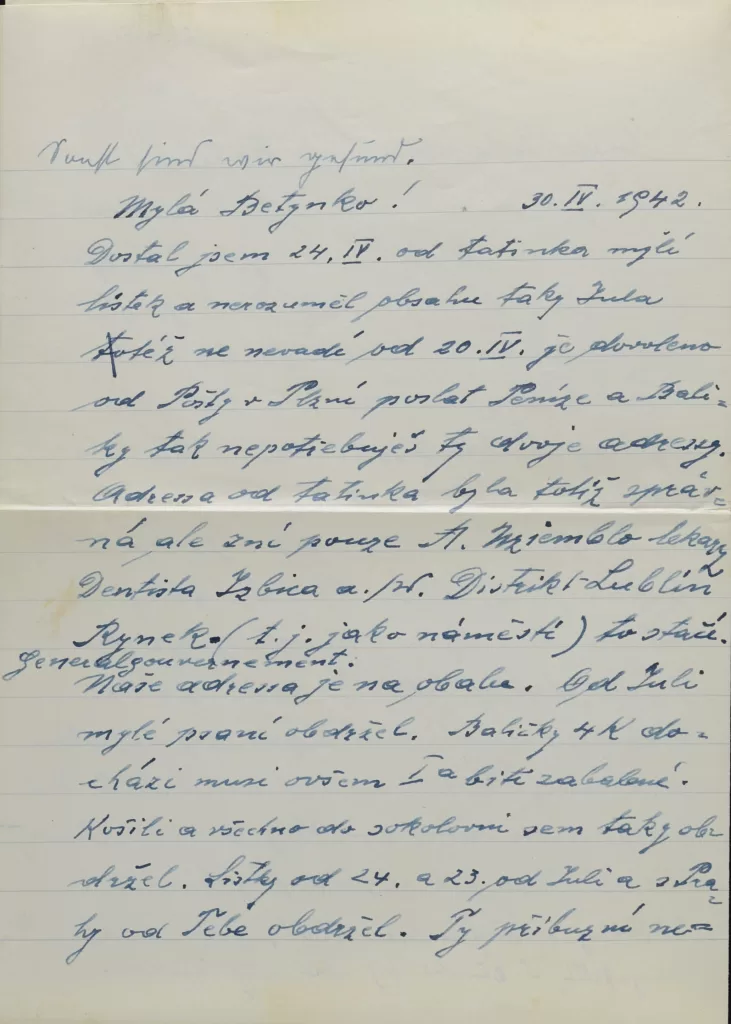 Sonst sind wir gesund.
Mylá Betynko! 30. IV. 1942.
Dostal jsem 24. IV. od tatinka mylí
lístek a nerozuměl obsahu taky Jula
totéž ne nevadí od 20. IV. je dovoleno
od Pošty v Plzni poslat Peníze a Balí=
ky tak nepotřebuješ ty dvoje adressy.
Adressa od tatinka byla totiž správ=
ná ale zní pouze A. lekarz
Dentista Izbica a./W. Distrikt-Lublin
Rynek (t. j. jako náměstí) to stačí.
Generalgouvernement.
Naše adressa je na obalu. Od Juli
mylé psaní obdržel. Balíčky 4 K do=
chází musi ovšem Ia biti zabalené.
Košili a všechno do sokolovni sem taky ob=
držel. Listky od 24. a 23. od Juli a z Pra=
hy od Tebe obdržel. Ty příbuzní ne=